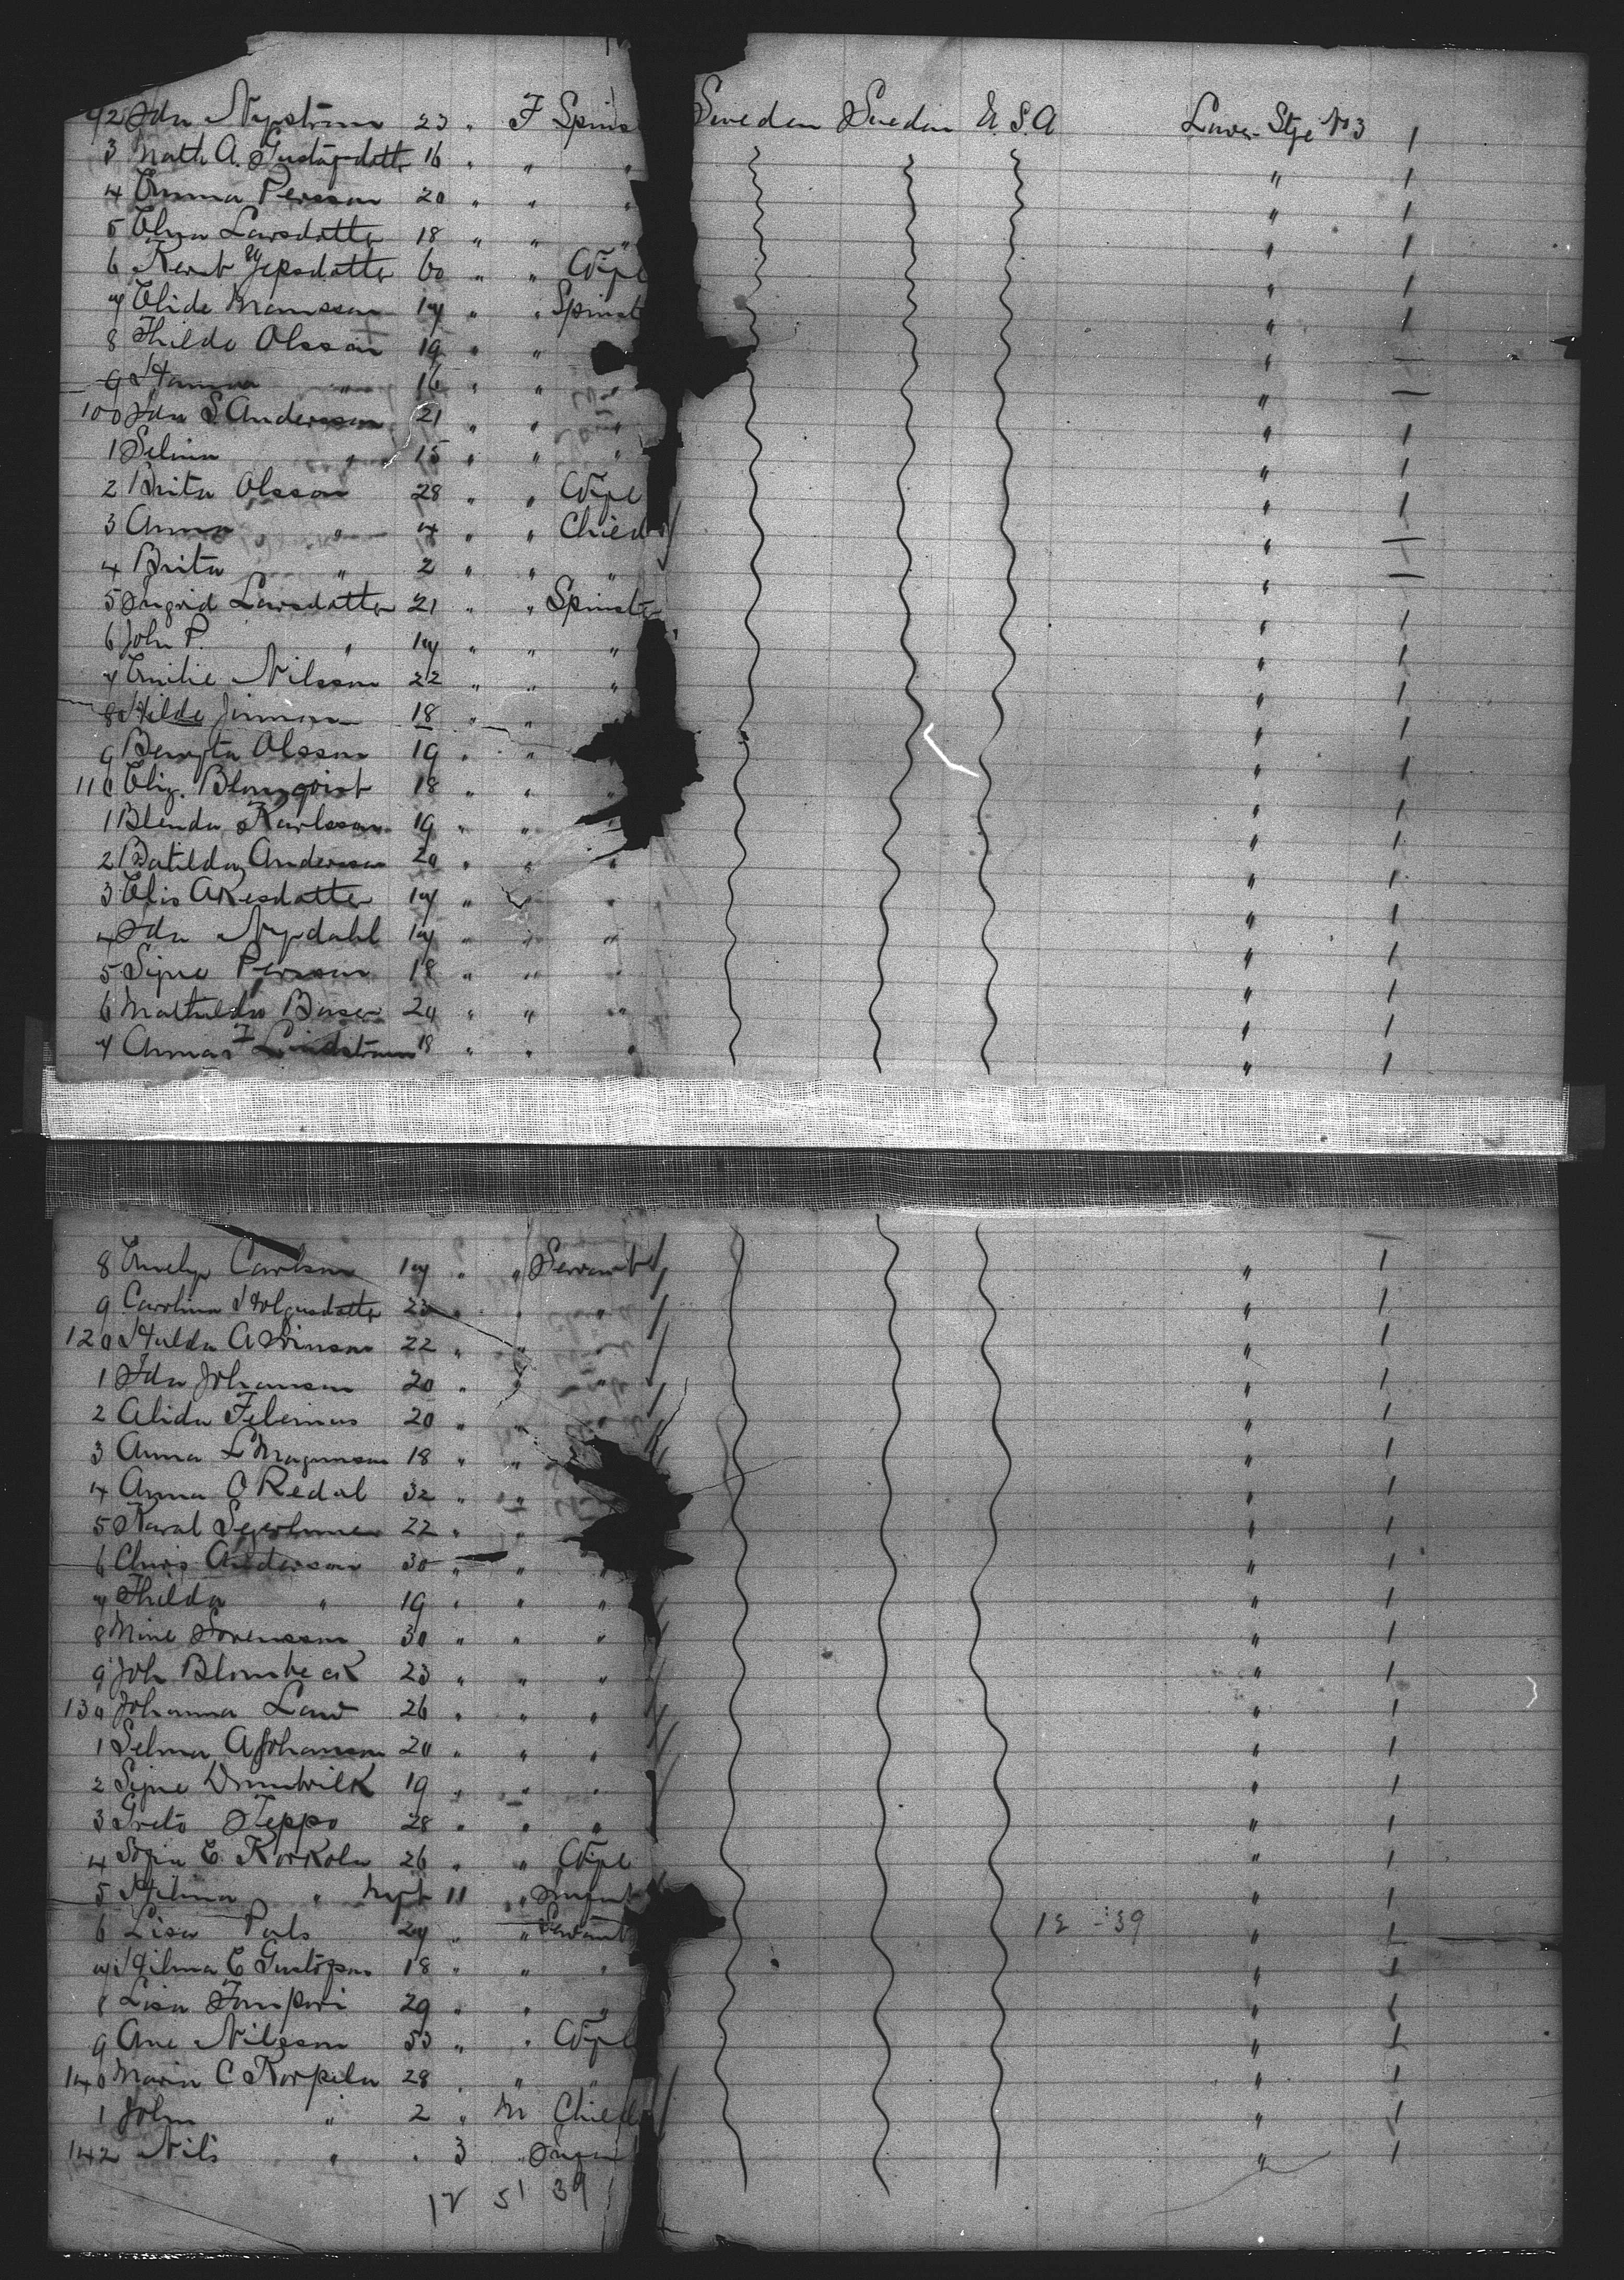 92 Ida Nystrom 23 " F Spins Sweden Sweden U.S.A Lower Stge No 3 1
3 Math A. Gustafsdotter 16 " " " " 1
4 Emma Persson 20 " " " " 1
5 Elna Larsdotter 18 " " " " 1
6 Kerst Jepsdotter 60 " " Wife " 1
7 Elide Monsson 17 " " Spinst " 1
8 Thilda Olsson 19 " " " —
9 Hanna " 16 " " " " —
100 Ida S Andersson 21 " " " " 1
1 Selma " 15 " " " " 1
2 Brita Olsson 28 " " Wife " 1
3 Anna " 4 " " Chied " —
4 Brita " 2 " " " " —
5 Ingrid Larsdotter 21 " " Spinste " 1
6 John P. " 17 " " " " 1
7 Emilie Nilsson 22 " " " " 1
8 Hilda 18 " " " 1
9 Bengta Olsson 19 " " " 1
110 Eliz. Blomqvist 18 " " " " 1
1 Blenda Karlsson 19 " " " 1
2 Batilda Andersson 20 " " " " 1
3 Elis Akesdotter 17 " " " 1
4 Ida Nydahl 17 " " " " 1
5 Signe Persson 18 " " " " 1
6 Mathilda 20 " " " " 1
7 Anna F Lindstrom 18 " " " " 1
8 Emely Carlson 17 " " Servant " 1
9 Carolina Holgersdatter 23 " " " " 1
120 Hulda A 22 " " " 1
1 Ida Johanson 20 " " " " 1
2 Alida 20 " " " 1
3 Anna L Magnusson 18 " " " 1
4 Anna O Redal 32 " " " 1
5 22 " " " 1
6 Chris Anderson 30 " " " " 1
7 Thilda " 19 " " " " 1
8 Mine Sorensson 30 " " " " 1
9 Joh Blombeck 23 " " " " 1
130 Johanna Law 26 " " " " 1
1 Selma A Johanson 20 " " " " 1
2 Signe 19 " " " " 1
3 Greta Teppo 28 " " " " 1
4 Sofia E. Korkola 26 " " Wife " 1
5 Hilma " 11 " Infant " 1
6 Lisa Pals 27 " " Servant 12 - 39 " 1
7 Hilma E Gustafson 18 " " " " 1
8 Lisa 29 " " " " 1
9 Ane Nilsson 53 " " Wife " 1
140 Maria C Korpela 28 " " " " 1
1 John " 2 " M Chied " 1
142 Nils " " 3 " Infan " 1
12 51 39